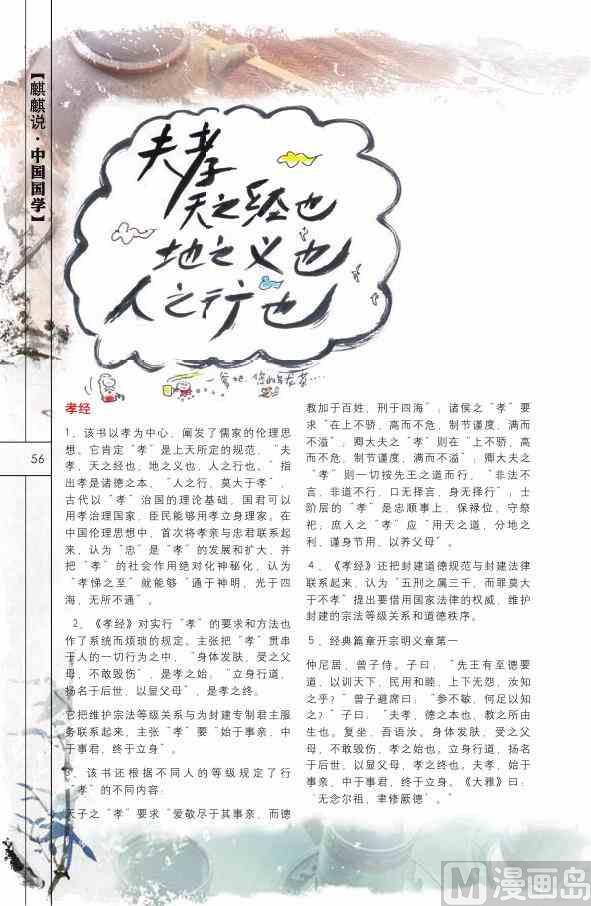 【麒麟说·中国国学】
夫孝
天之经也
地之义也
人之行也
孝经
1、该书以孝为中心、阐发了儒家的伦理思
想。它肯定“孝”是上天所定的规范，“夫
孝、天之经也、地之义也、人之行也。”指
出孝是诸德之本、“人之行、莫大于孝”，
古代以“孝”治国的理论基础，国君可以
用孝治理国家，臣民能够用孝立身理家。在
中国伦理思想中、首次将孝亲与忠君联系起
来，认为“忠”是“孝”的发展和扩大，并
把“孝”的社会作用绝对化神秘化，认为
“孝悌之至”就能够“通于神明，光于四
海、无所不通”。
2、《孝经》对实行“孝”的要求和方法也
作了系统而烦琐的规定。主张把“孝”贯串
于人的一切行为之中，“身体发肤、受之父
母，不敢毁伤”，是孝之始；“立身行道、
扬名于后世、以显父母”，是孝之终。
它把维护宗法等级关系与为封建专制君主服
务联系起来，主张“孝”要“始于事亲，中
于事君，终于立身”。
3、该书还根据不同人的等级规定了行
“孝”的不同内容：
天子之“孝”要求“爱敬尽于其事亲，而德
教加于百姓，刑于四海”；诸侯之“孝”要
求“在上不骄，高而不危，制节谨度，满而
不溢”；卿大夫之“孝”则在“上不骄，高
而不危，制节谨度，满而不溢”；卿大夫之
“孝”则一切按先王之道而行，“非法不
言，非道不行，口无择言，身无择行”；士
阶层的“孝”是忠顺事上，保禄位，守祭
祀；庶人之“孝”应“用天之道，分地之
利，谨身节用，以养父母”。
4、《孝经》还把封建道德规范与封建法律
联系起来，认为“五刑之属三千，而罪莫大
于不孝”提出要借用国家法律的权威，维护
封建的宗法等级关系和道德秩序。
5、经典篇章开宗明义章第一
仲尼居，曾子侍。子曰：“先王有至德要
道，以训天下，民用和睦，上下无怨，汝知
之乎？”曾子避席曰：“参不敏，何足以知
之？”子曰：“夫孝，德之本也，教之所由
生也。复坐，吾语汝。身体发肤，受之父
母，不敢毁伤，孝之始也。立身行道，扬名
于后世，以显父母，孝之终也。夫孝，始于
事亲，中于事君，终于立身。《大雅》曰：
“无念尔祖，聿修厥德”。”
56
M 漫画岛